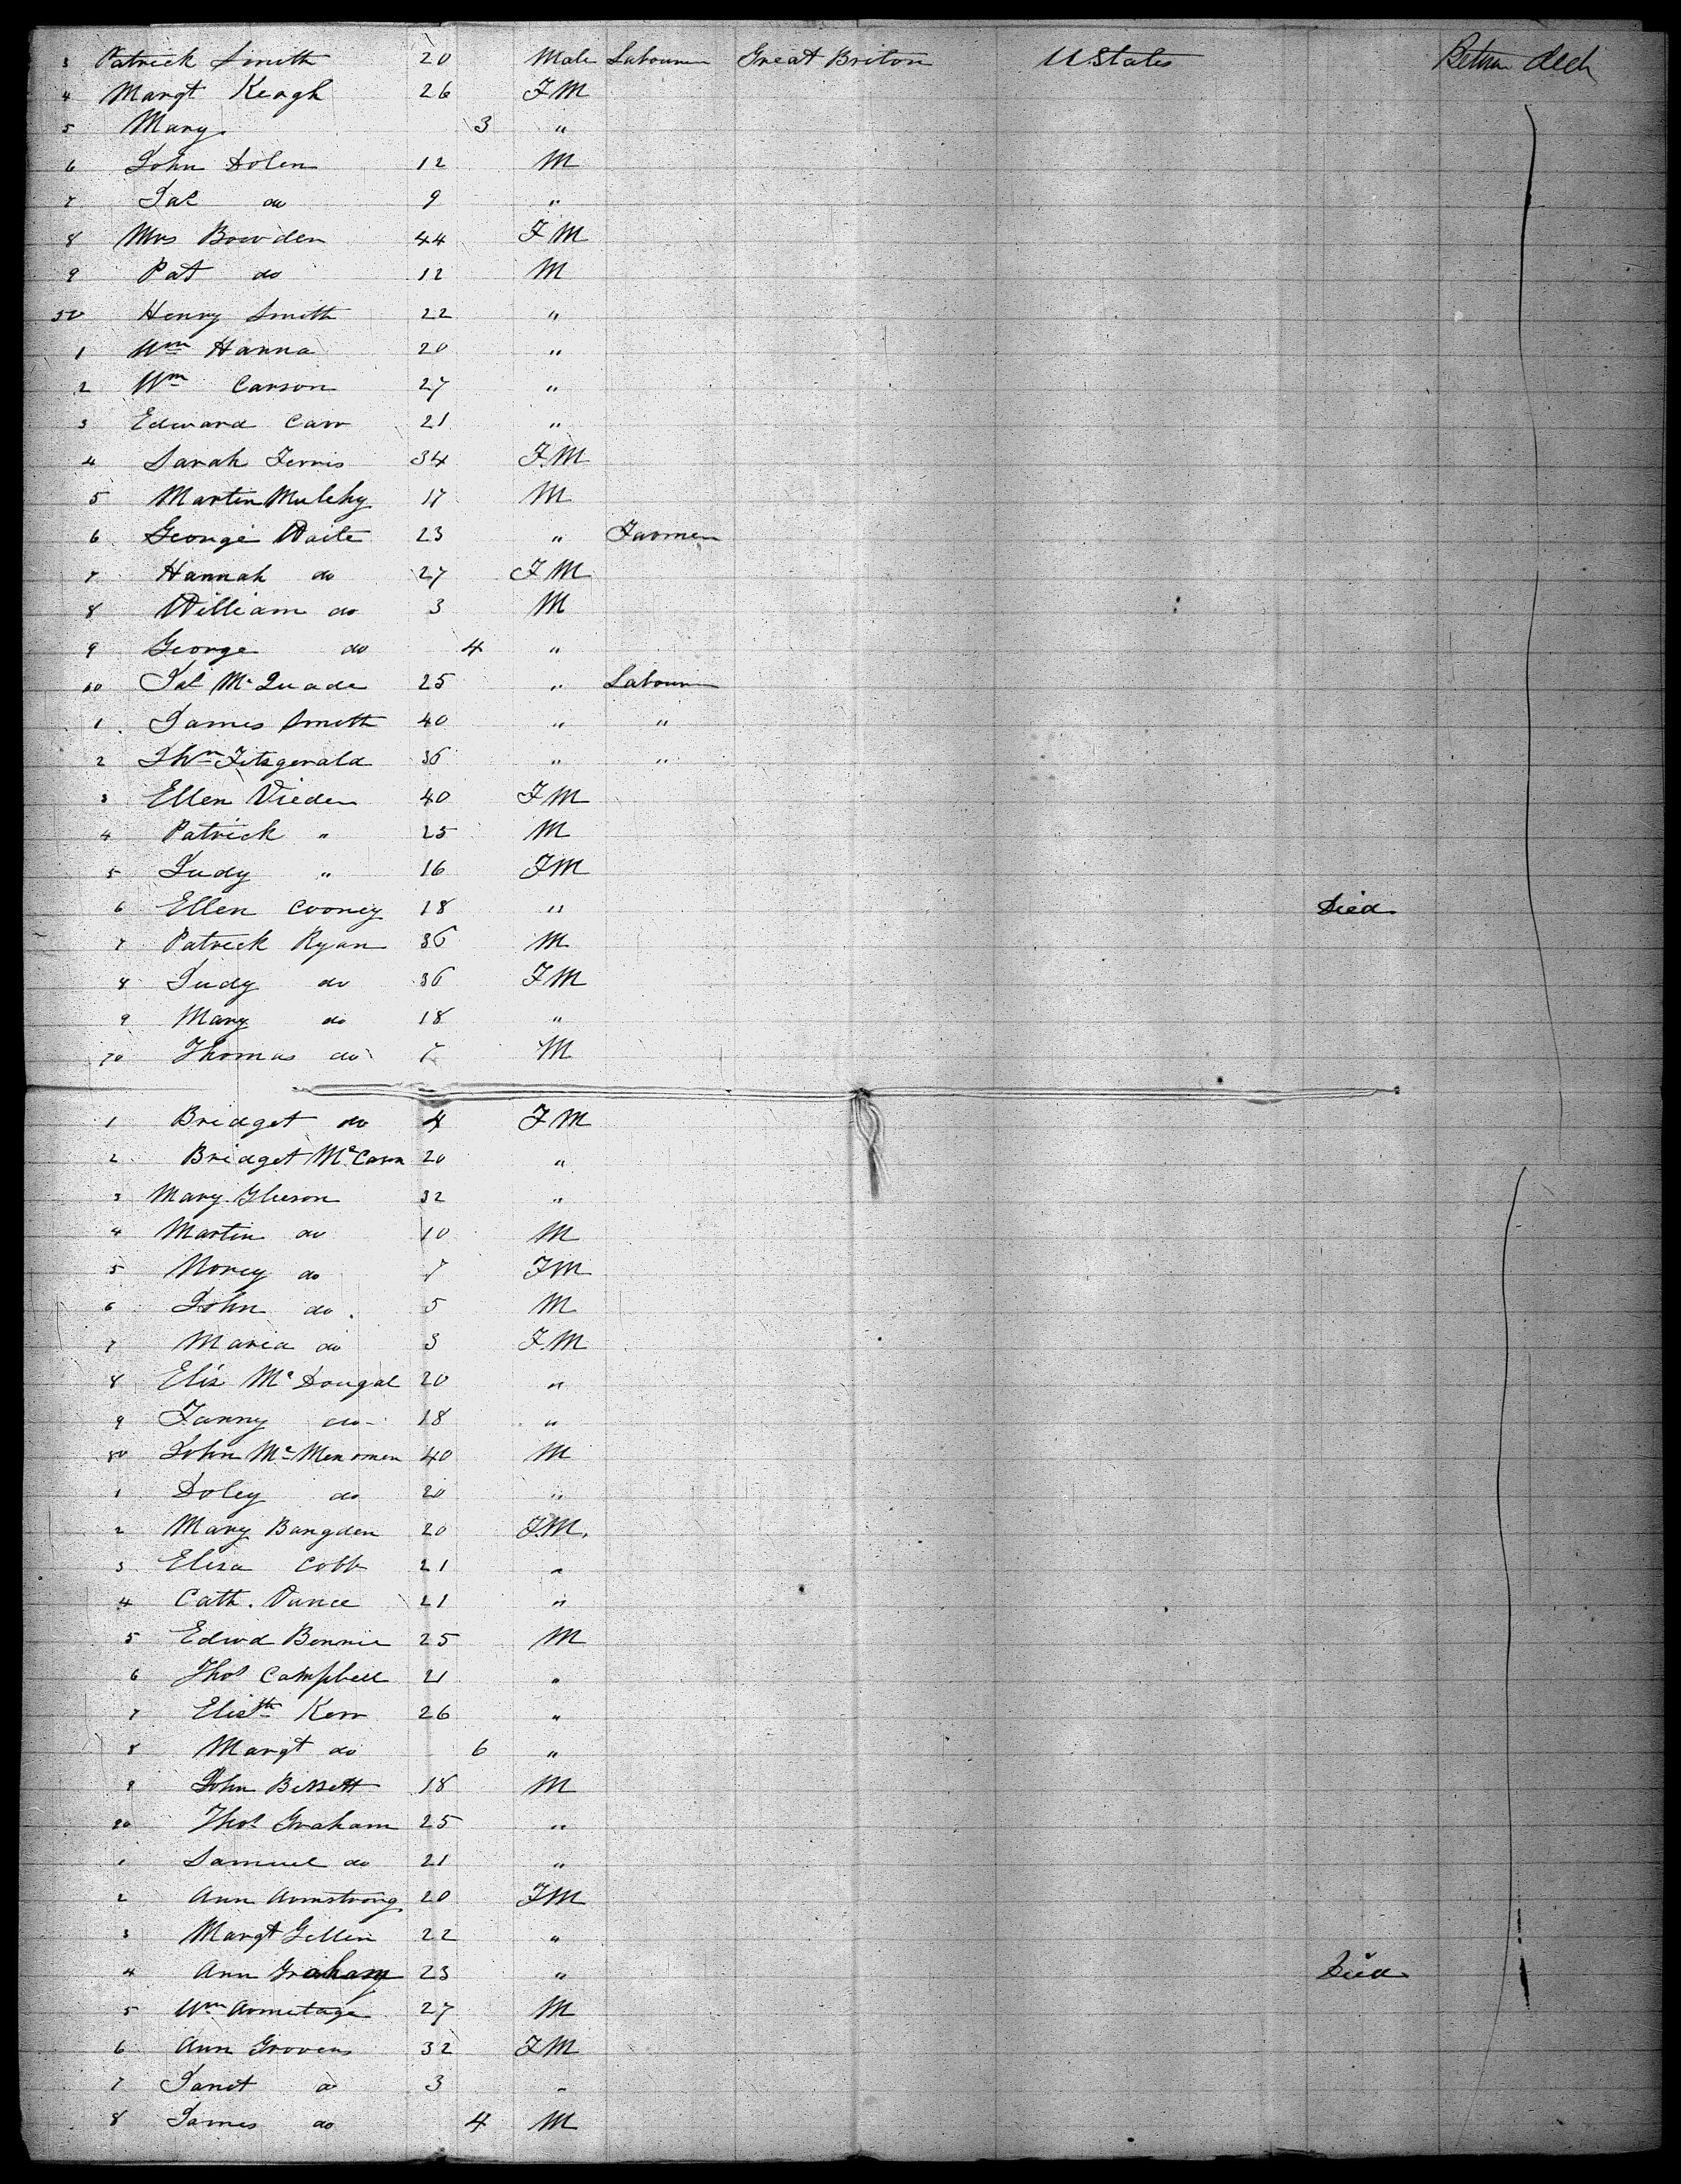 3 Patrick Smith 20 Male Labourer Great Briton U States Betwn deck
4 Margt Keogh 26 FM
5 Mary 3 "
6 John Dolen 12 M
7 Jas do 9 "
8 Mrs Bowden 44 FM
9 Pat do 12 M
50 Henry Smith 22 "
1 Wm Hanna 20 "
2 Wm Carson 27 "
3 Edward Carr 21 "
4 Sarah Ferris 34 FM
5 Martin Mulchy 17 M
6 George Waite 23 " Farmer
7 Hannah do 27 FM
8 William do 3 M
9 George do 4 "
60 Jas McQuade 25 " Labourer
1 James Smith 40 " "
2 Fitzgerald 36 " "
3 Ellen Vieden 40 FM
4 Patrick " 25 M
5 Judy " 16 FM
6 Ellen Cooney 18 " Died
7 Patrick Ryan 36 M
8 Judy do 36 FM
9 Mary do 18 "
70 Thomas do 7 M
1 Bridget do 4 FM
2 Bridget McCann 20 "
3 Mary Gleeson 32 "
4 Martin do 10 M
5 Norey do 7 FM
6 John do. 5 M
7 Maria do 3 FM
8 Eliz McDougal 20 "
9 Fanny do 18 "
80 John McMenomen 40 M
1 Doley do 20 "
2 Mary Bangden 20 FM.
3 Eliza Cobb 21 "
4 Cath. Vance 21 "
5 Edwd Bonnie 25 M
6 Thos Campbell 21 "
7 Elisth Kerr 26 "
8 Margt do 6 "
9 John Bissett 18 M
90 Thos Graham 25 "
1 Samuel do 21 "
2 Ann Armstrong 20 FM
3 Margt Gillin 22 "
4 Ann Graham 23 " Died
5 Wm Armitage 27 M
6 Ann Grovens 32 FM
7 Janet do 3 "
8 James do 4 M